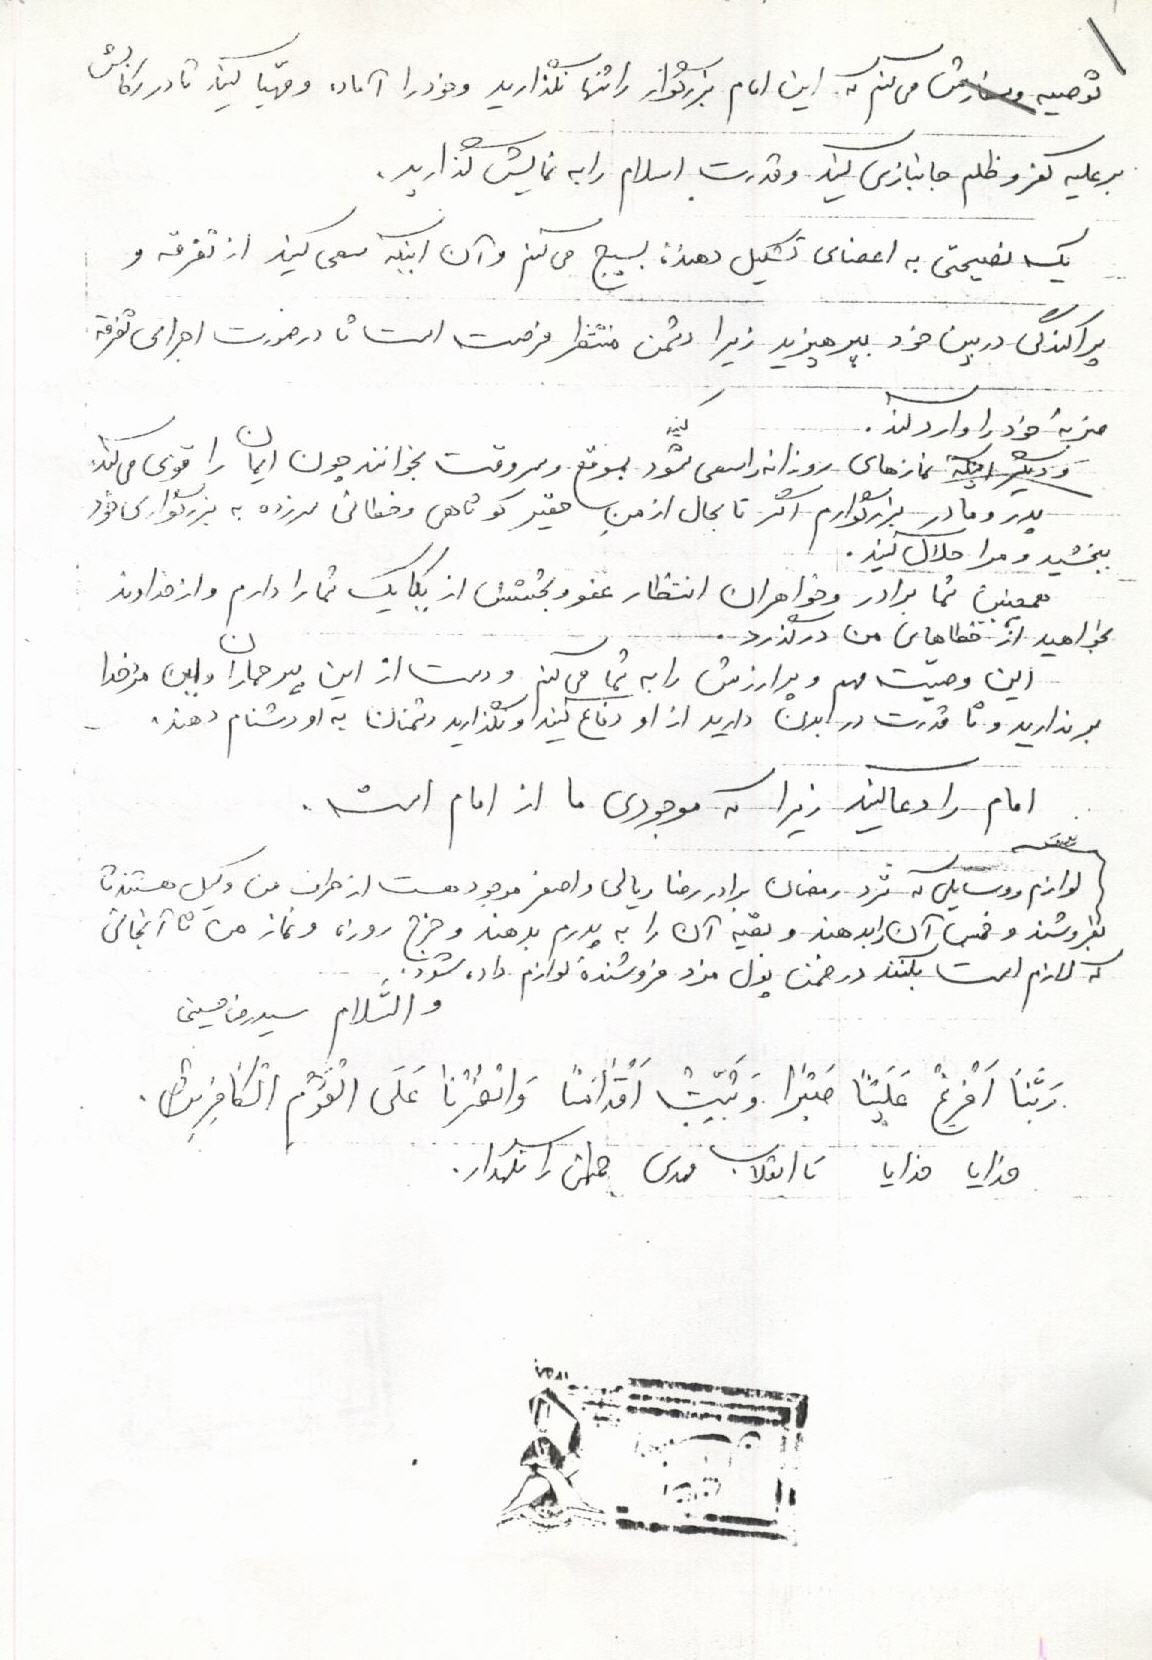 توصیه و سفارش می‌کنم که این امام بزرگوار را تنها نگذارید و خود را آماده و مهیا کنید تا در رکابش
بر علیه کفر و ظلم جانبازی کنید و قدرت اسلام را به نمایش گذارید.
یک نصیحتی به اعضای تشکیل دهنده بسیج می‌کنم و آن اینکه سعی کنید از تفرقه و
پراکندگی در بین خود بپرهیزید زیرا دشمن منتظر فرصت است تا در صورت اجرای تفرقه
ضربهٔ خود را وارد کند.
و دیگر اینکه نمازهای روزانه را سعی شود کنید بموقع و سر وقت بخوانند چون ایمان را قوی می‌کند
پدر و مادر بزرگوارم اگر تا بحال از من حقیر کوتاهی و خطائی سر زده به بزرگواری خود
ببخشید و مرا حلال کنید.
همچنین شما برادر و خواهران انتظار عفو و بخشش از یکایک شما را دارم و از خداوند
بخواهید از خطاهای من درگذرد.
این وصیت مهم و پرارزش را به شما می‌کنم و دست از این پیر جماران و این مرد خدا
بر ندارید و تا قدرت در بدن دارید از او دفاع کنید و نگذارید دشمنان به او دشنام دهند.
امام را دعا کنید زیرا که موجودی ما از امام است.
لوازم و وسایلی که نزد رمضان برادر رضا ریالی و اصغر موجود هست از طرف من وکیل هستند تا
بفروشند و خمس آن را بدهند و بقیه آن را به پدرم بدهند و خرج روزه و نماز من تا آنجائی
که لازم است بکنند در ضمن پول مزد فروشندهٔ لوازم داده شود.
و السّلام سید رضا حسینی
رَبَّنَا اَفْرِغْ عَلَیْنَا صَبْرًا وَ ثَبِّتْ اَقْدَامَنَا وَ انْصُرْنَا عَلَی الْقَوْمِ الْکَافِرِینَ.
خدایا خدایا تا انقلاب مهدی خمینی را نگهدار.